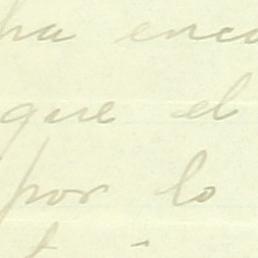 ha enco
que el
por lo